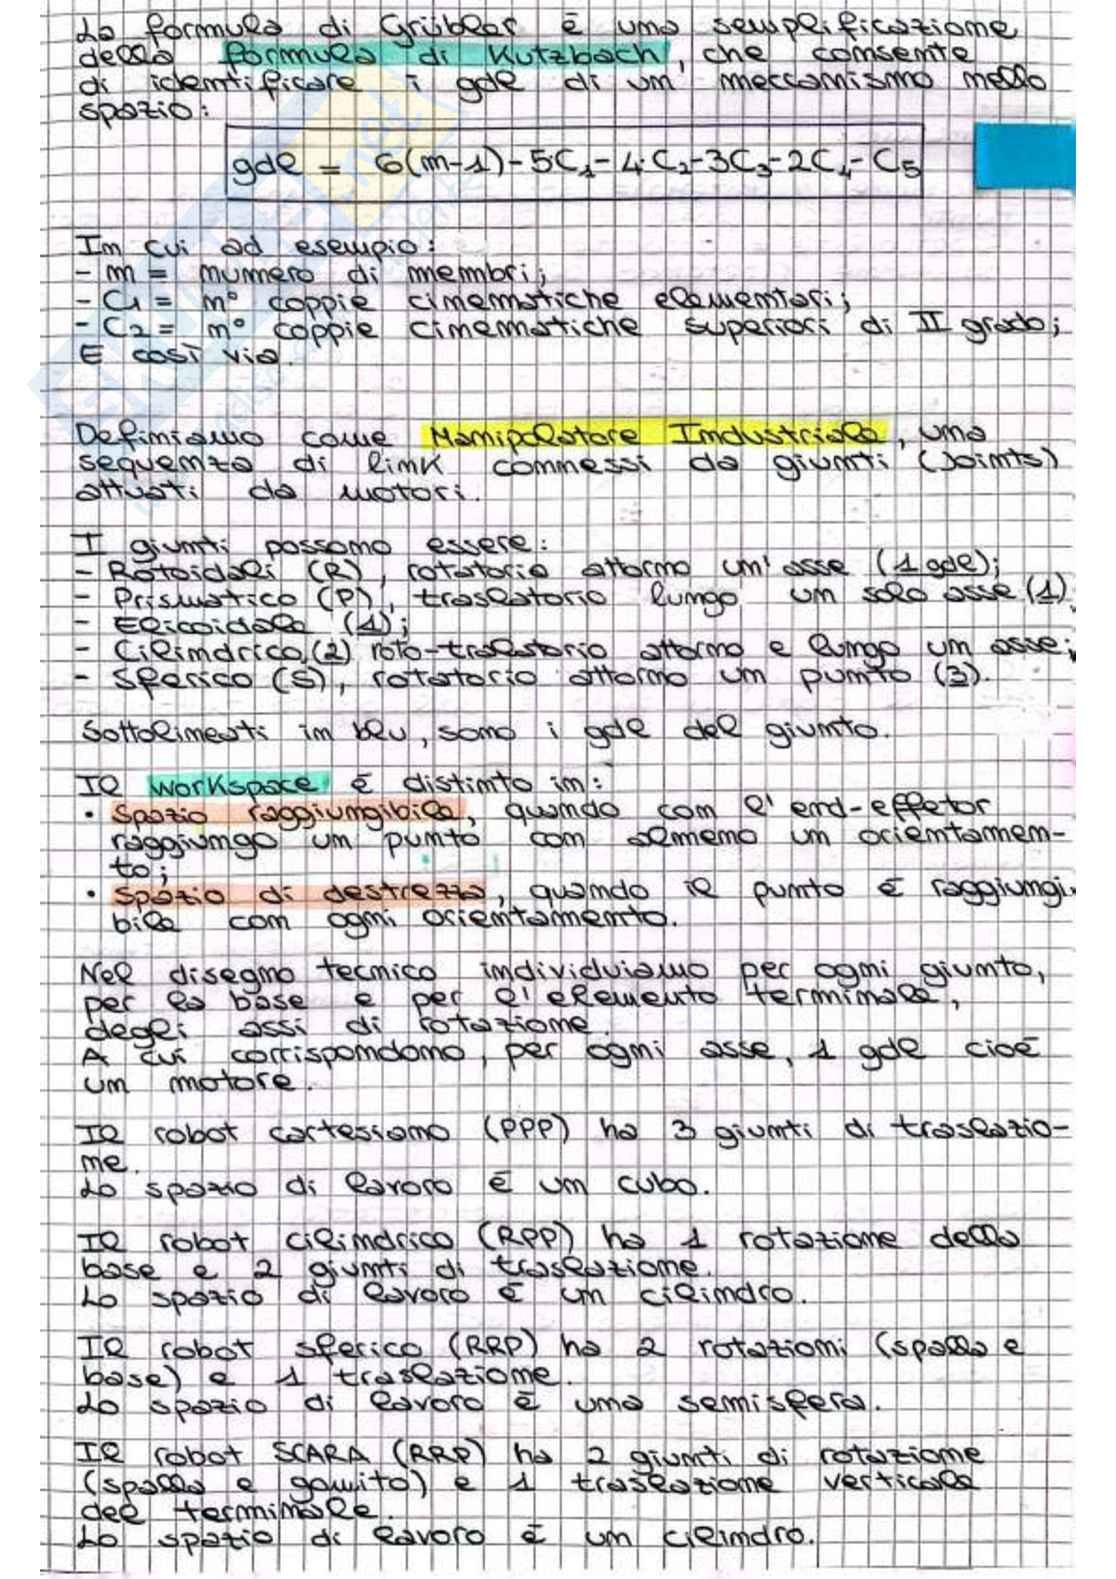 La formula di Grübler è una semplificazione
della formula di Kutzbach, che consente
di identificare i gdl di un meccanismo nello
spazio:
gdl = 6(m-1)-5C₁-4·C₂-3C₃-2C₄-C₅
In cui ad esempio:
- m = numero di membri;
- C₁ = n° coppie cinematiche elementari;
- C₂ = n° coppie cinematiche superiori di II grado;
E così via.
Definiamo come Manipolatore Industriale, una
sequenza di link connessi da giunti (Joints)
attuati da motori.
I giunti possono essere:
- Rotoidali (R), rotatorio attorno un'asse (1 gdl);
- Prismatico (P), traslatorio lungo un solo asse (1)
- Elicoidale (1);
- Cilindrico (2) roto-traslatorio attorno e lungo un asse;
- Sferico (S), rotatorio attorno un punto (3).
Sottolineati in blu, sono i gdl del giunto.
Il workspace è distinto in:
• Spazio raggiungibile, quando con l'end-effetor
raggiungo un punto con almeno un orientamen-
to;
• Spazio di destrezza, quando il punto è raggiungi-
bile con ogni orientamento.
Nel disegno tecnico individuiamo per ogni giunto,
per la base e per l'elemento terminale,
degli assi di rotazione.
A cui corrispondono, per ogni asse, 1 gdl cioè
un motore.
Il robot cartesiano (PPP) ha 3 giunti di traslazio-
ne.
Lo spazio di lavoro è un cubo.
Il robot cilindrico (RPP) ha 1 rotazione della
base e 2 giunti di traslazione.
Lo spazio di lavoro è un cilindro.
Il robot sferico (RRP) ha 2 rotazioni (spalla e
base) e 1 traslazione.
Lo spazio di lavoro è una semisfera.
Il robot SCARA (RRP) ha 2 giunti di rotazione
(spalla e gomito) e 1 traslazione verticale
del terminale.
Lo spazio di lavoro è un cilindro.